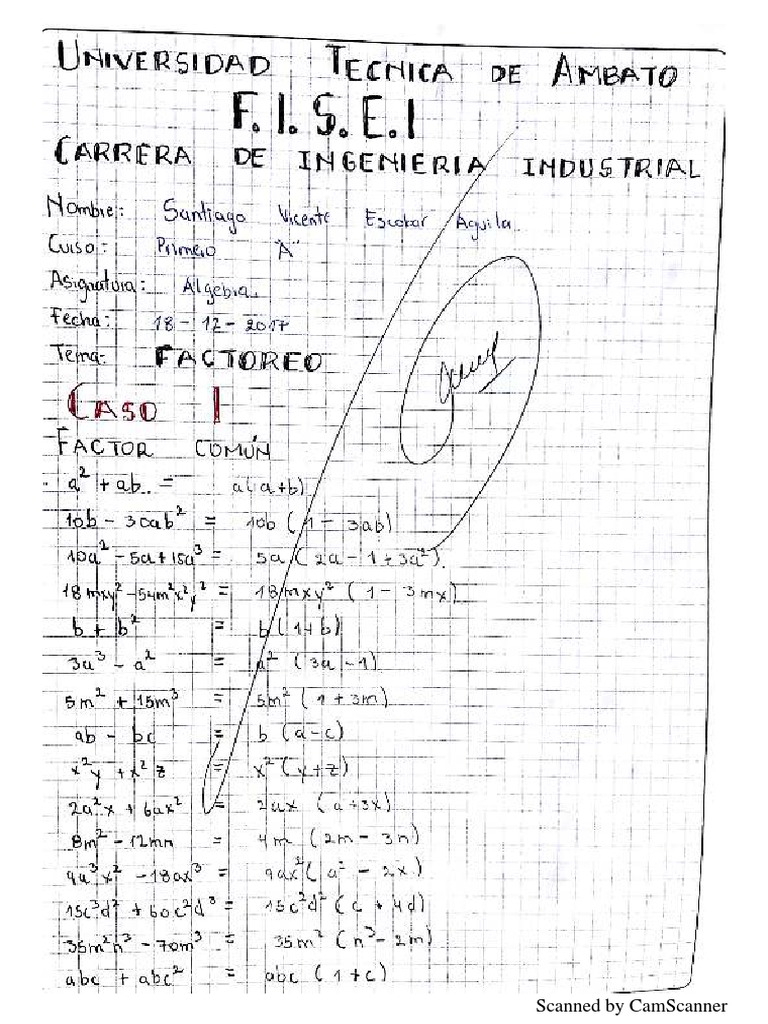 UNIVERSIDAD TECNICA DE AMBATO
F.I.S.E.I
CARRERA DE INGENIERIA INDUSTRIAL
Nombre: Santiago Vicente Escobar Aguila
Curso: Primero "A"
Asignatura: Algebra
Fecha: 18-12-2017
Tema: FACTOREO
CASO 1
FACTOR COMÚN
a² + ab = a(a+b)
10b - 30ab² = 10b (1 - 3ab)
10a² - 5a + 15a³ = 5a (2a - 1 + 3a²)
18mxy² - 54m²x²y² = 18mxy² (1 - 3mx)
b + b² = b(1+b)
3a³ - a² = a² (3a - 1)
5m² + 15m³ = 5m² (1 + 3m)
ab - bc = b (a-c)
x²y + x²z = x² (y+z)
2a²x + 6ax² = 2ax (a+3x)
8m² - 12mn = 4m (2m - 3n)
9a³x² - 18ax³ = 9ax² (a² - 2x)
15c³d² + 60c²d³ = 15c²d² (c + 4d)
35m²n³ - 70m³ = 35m² (n³ - 2m)
abc + abc² = abc (1+c)
Scanned by CamScanner